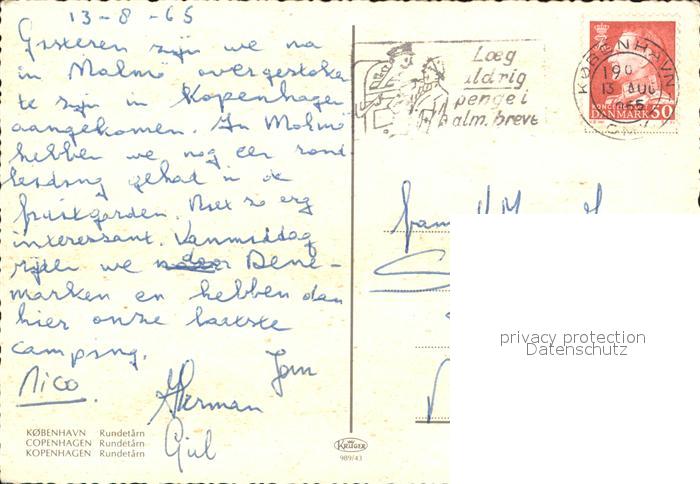 13-8-65
Gisteren zijn we na
in Malmö overgestoke
te zijn in Kopenhagen
aangekomen. In Malmö
hebben we nog een rond
leiding gehad in de
fruitgarden. Niet zo erg
interessant. Vanmiddag
rijden we door Dene-
marken en hebben dan
hier onze laatste
camping.
Jan
Nico
Herman
Giel
KØBENHAVN Rundetårn
COPENHAGEN Rundetårn
KOPENHAGEN Rundetårn
KRÜGER
989/43
Læg
aldrig
penge i
alm. breve
KØBENHAVN
190
13 AUG
1965
OMK
DANMARK 50
fam
privacy protection
Datenschutz